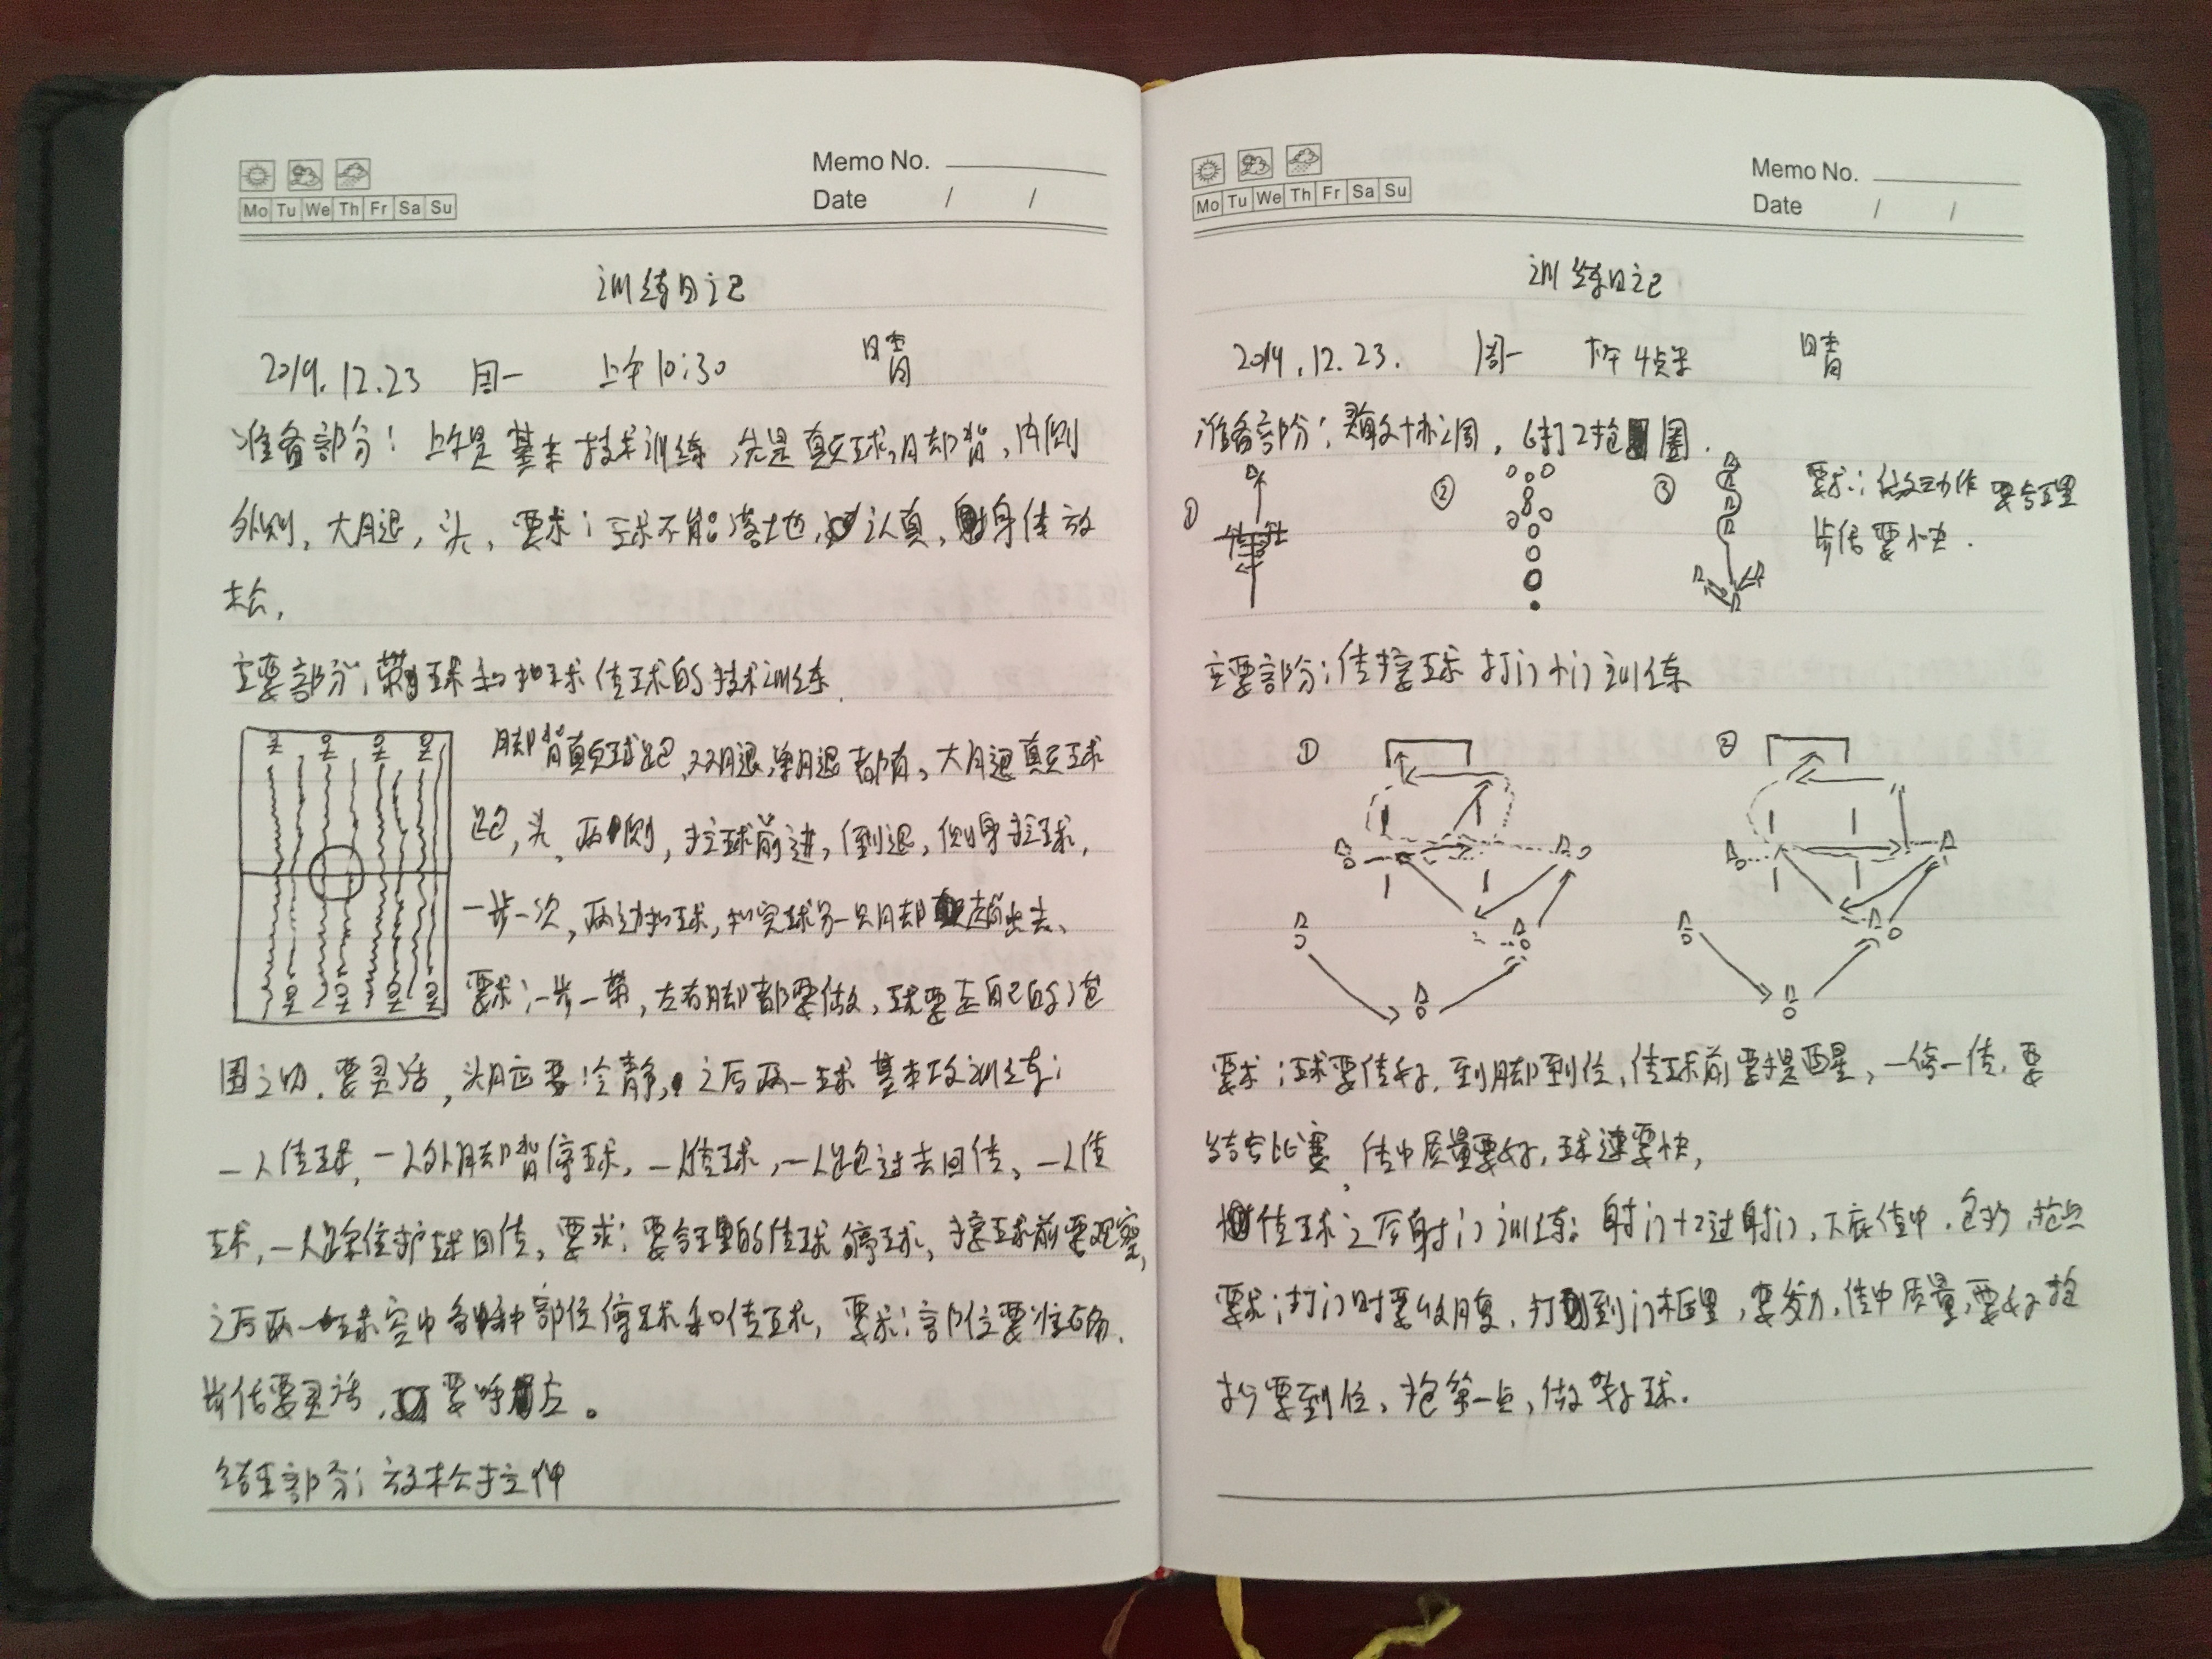 Mo Tu We Th Fr Sa Su
Memo No.
Date / /
训练日记
2019.12.23 周一 上午10:30 晴
准备部分：上午是基本技术训练，先是颠球，脚背，内侧
外侧，大腿，头，要求：球不能落地，认真，身体放
松，
主要部分：带球和扣球传球的技术训练.
脚背颠球跑，双腿，单腿都有，大腿颠球
跑，头，两侧，拉球前进，倒退，侧身拉球，
一步一次，两边扣球，扣完球另一只脚趟出去、
要求：一步一带，左右脚都要做，球要在自己的范
围之内.要灵活，头脑要冷静，之后两人一球基本功训练：
一人传球，一人外脚背停球，一人传球，一人跑过去回传，一人传
球，一人倚住护球回传，要求：要合理的传球停球，接球前要观察，
之后两人一球空中各种部位停球和传球，要求：部位要准确.
步伐要灵活，要呼应。
结束部分：放松拉伸
Mo Tu We Th Fr Sa Su
Memo No.
Date / /
训练日记
2019.12.23. 周一 下午4点半 晴
准备部分：灵敏协调，6打2抢圈.
① ② ③ 要求：做动作要合理
步伐要快.
主要部分：传接球打门射门训练
① ②
要求：球要传好，到脚到位，传球前要提醒，一停一传，要
结合比赛，传中质量要好，球速要快，
传球之后射门训练：射门+2过射门，下底传中，包抄，抢点
要求：打门时要收腹，打到门框里，要发力，传中质量要好抢
抄要到位，抢第一点，做好球.